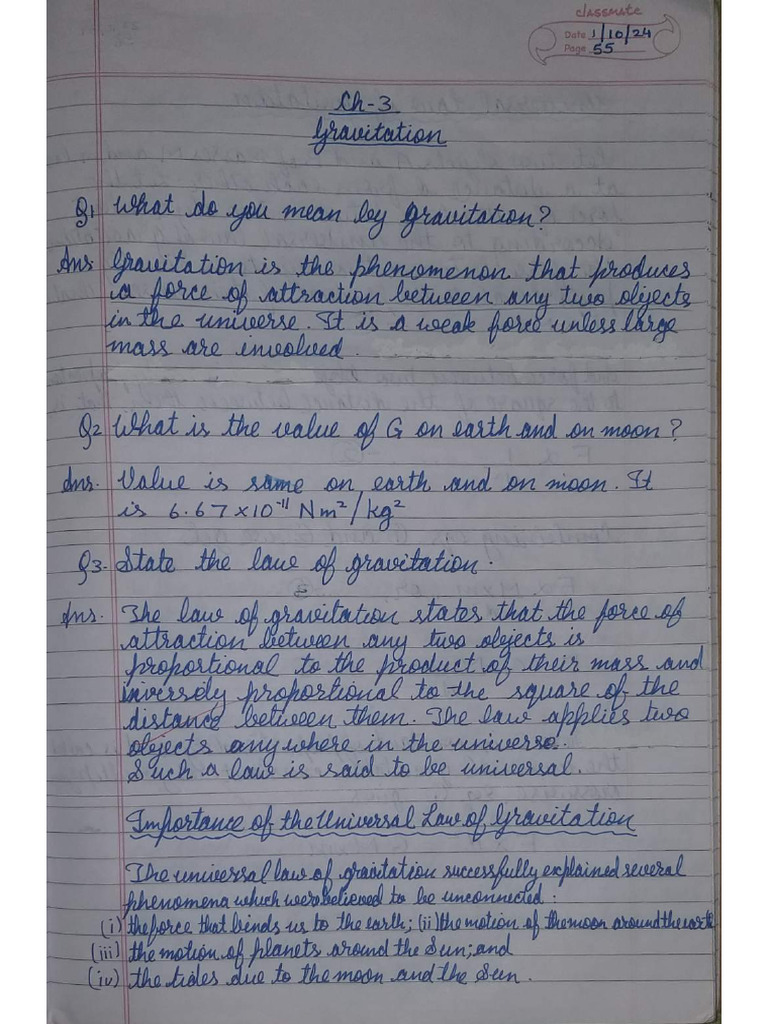 classmate
Date 1/10/24
Page 55
Ch-3
Gravitation
Q1 What do you mean by gravitation?
Ans: Gravitation is the phenomenon that produces
a force of attraction between any two objects
in the universe. It is a weak force unless large
mass are involved.
Q2 What is the value of G on earth and on moon?
Ans. Value is same on earth and on moon. It
is 6.67×10⁻¹¹ Nm²/kg²
Q3. State the law of gravitation.
Ans. The law of gravitation states that the force of
attraction between any two objects is
proportional to the product of their mass and
inversely proportional to the square of the
distance between them. The law applies two
objects anywhere in the universe.
Such a law is said to be universal.
Importance of the Universal Law of Gravitation
The universal law of gravitation successfully explained several
phenomena which were believed to be unconnected:
(i) the force that binds us to the earth; (ii) the motion of the moon around the earth
(iii) the motion of planets around the Sun; and
(iv) the tides due to the moon and the Sun.